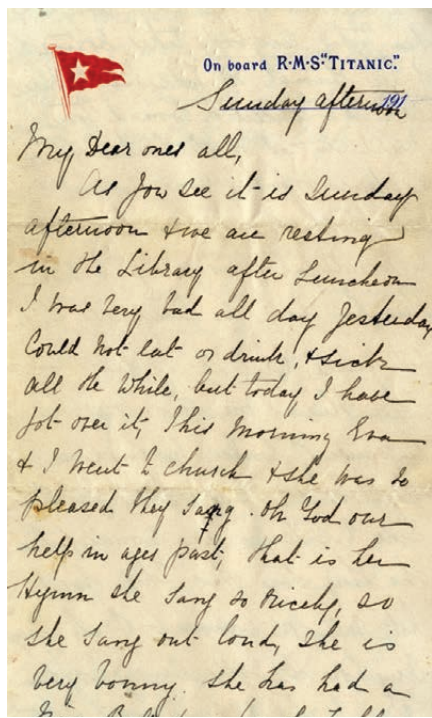 On board R·M·S "TITANIC."
Sunday afternoon 191
My Dear ones all,
As you see it is Sunday
afternoon & we are resting
in the Library after Luncheon
I was very bad all day Yesterday
Could not eat or drink, & sick
all the while, but today I have
got over it, This morning Eva
& I went to church & she was so
pleased they sang Oh God our
help in ages past, that is her
Hymn she sang so nicely, so
she sang out loud, she is
very bonny. she has had a